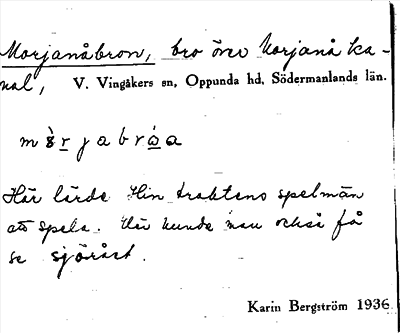 Morjanåbron, bro över Morjanå ka-
nal, V. Vingåkers sn, Oppunda hd, Södermanlands län.
Här lärde Hin traktens spelmän
att spela. Här kunde man också få
se sjörået.
Karin Bergström 1936